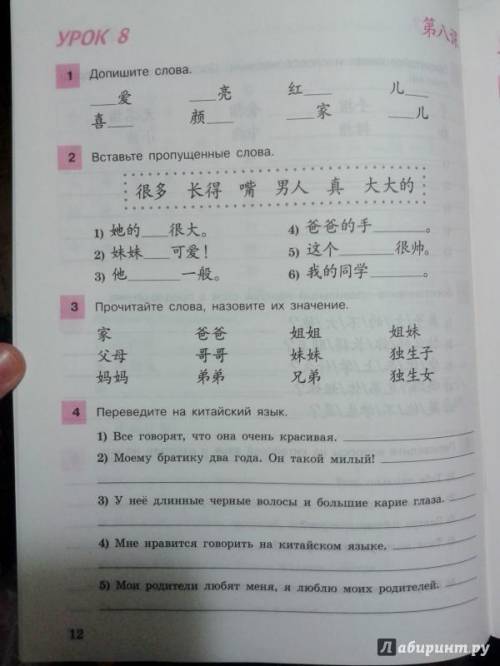 УРОК 8 第八课
1 Допишите слова.
___爱 ___亮 红___ 儿___
喜___ 颜___ ___家 ___儿
2 Вставьте пропущенные слова.
很多 长得 嘴 男人 真 大大的
1) 她的___很大。 4) 爸爸的手______。
2) 妹妹___可爱！ 5) 这个______很帅。
3) 他______一般。 6) 我的同学______。
3 Прочитайте слова, назовите их значение.
家 爸爸 姐姐 姐妹
父母 哥哥 妹妹 独生子
妈妈 弟弟 兄弟 独生女
4 Переведите на китайский язык.
1) Все говорят, что она очень красивая.
2) Моему братику два года. Он такой милый!
3) У неё длинные черные волосы и большие карие глаза.
4) Мне нравится говорить на китайском языке.
5) Мои родители любят меня, я люблю моих родителей.
12
Лабиринт.ру